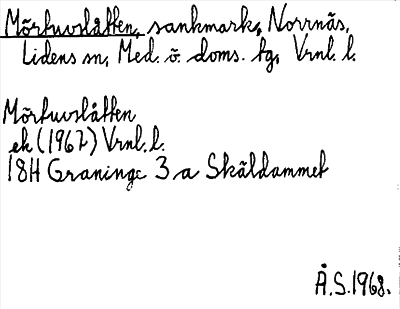 Mörtuvslåtten, sankmark, Norrnäs,
Lidens sn, Med. ö. doms. tg, Vrnl. l.
Mörtuvslåtten
ek (1962) Vrnl. l.
18H Graninge 3 a Skäldammet
Å.S. 1968.